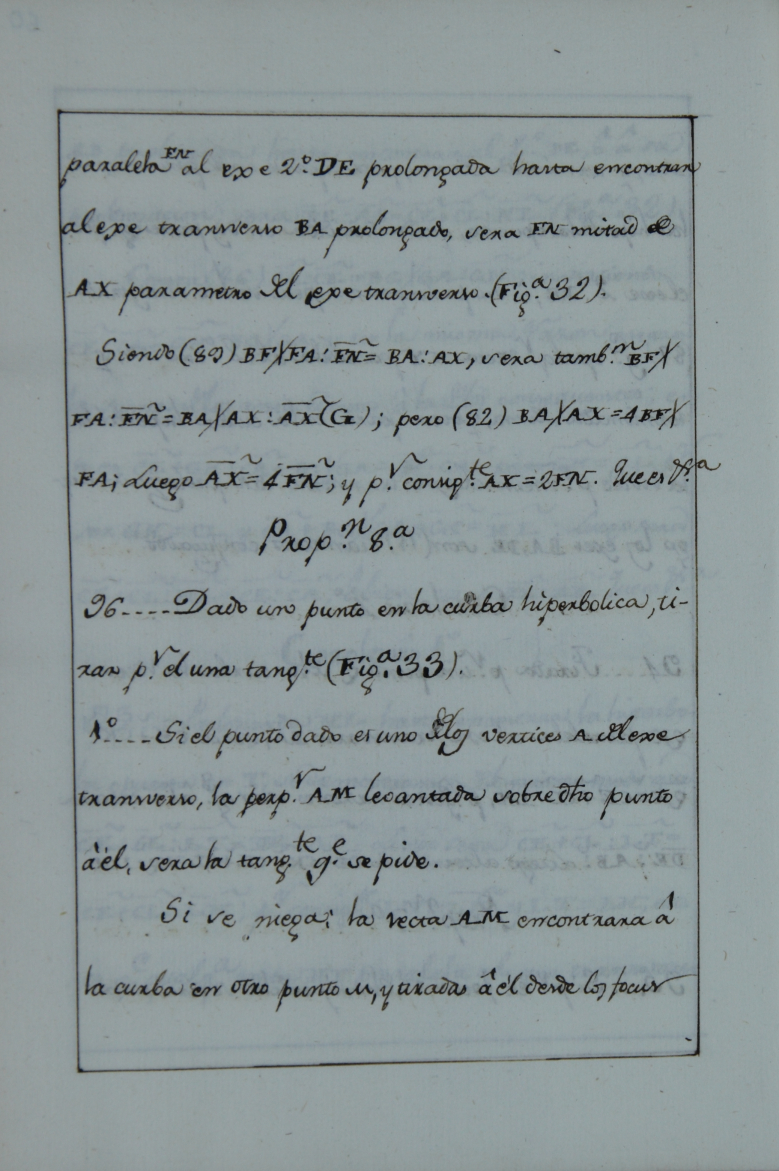 paralela FN al exe 2.º DE prolongada hasta encontrar
al exe transverso BA prolongado, sera FN mitad de
AX parametro del exe transverso (Fig.ª 32).
Siendo (89) BF╳FA : F̅N̅² = BA : AX, sera tamb.n BF╳
FA : F̅N̅² = BA╳AX : A̅X̅² (G); pero (82) BA╳AX = 4BF╳
FA; Luego A̅X̅² = 4F̅N̅²; y p.r consig.te AX = 2FN. Que es d.ª
Prop.n 8.ª
96----Dado un punto en la curba hiperbolica, ti-
rar p.r el una tang.te (Fig.ª 33).
1º----Si el punto dado es uno de los vertices A del exe
transverso, la perp.r AM levantada sobre dho punto
â él, sera la tang.te q.e se pide.
Si se niega; la recta AM encontrara â
la curba en otro punto M, y tiradas â él desde los focus